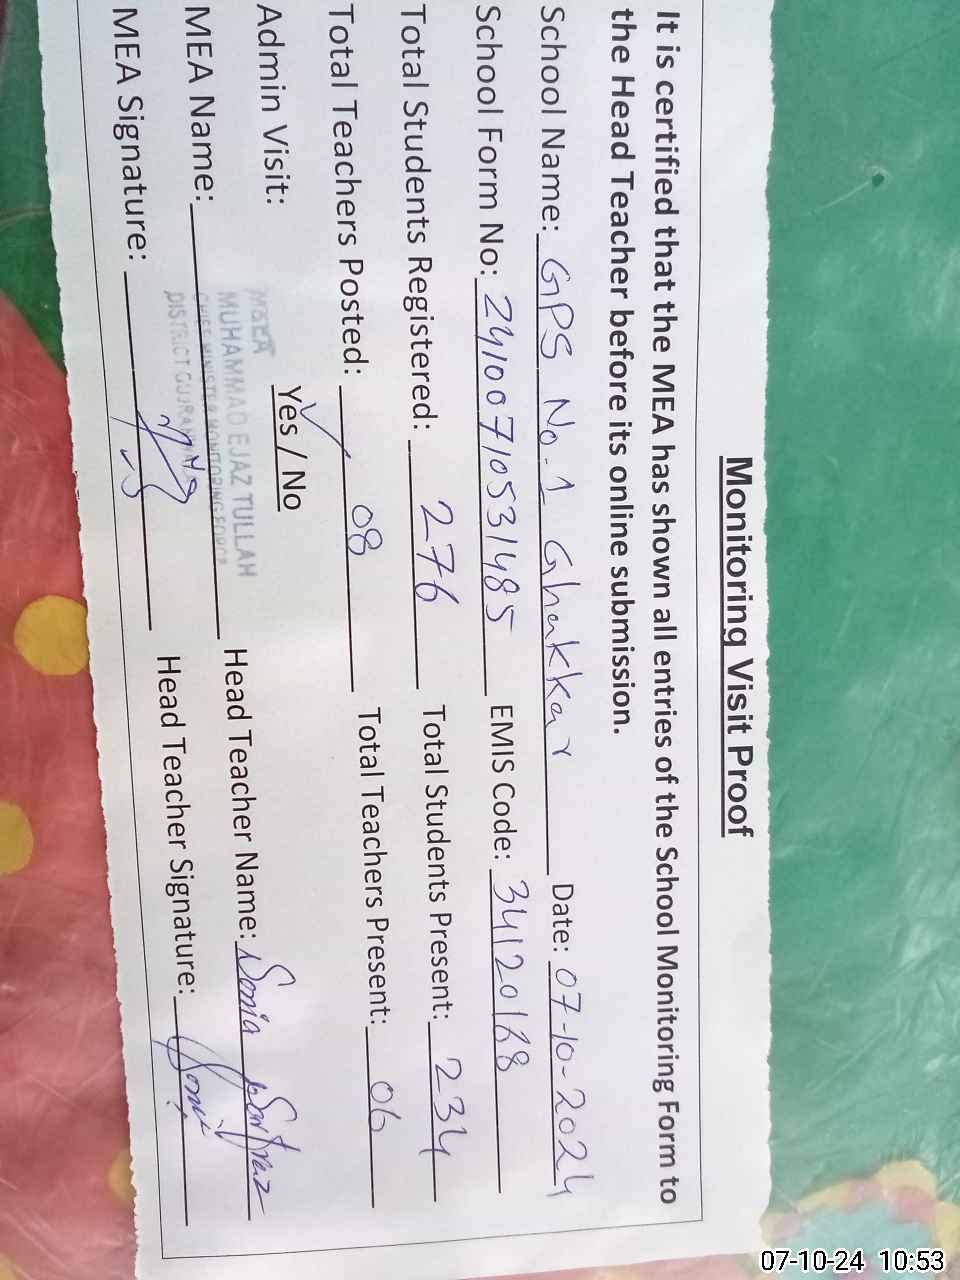 Monitoring Visit Proof
It is certified that the MEA has shown all entries of the School Monitoring Form to
the Head Teacher before its online submission.
School Name: GPS No.1 Ghakkar Date: 07-10-2024
School Form No: 24100710531485 EMIS Code: 34120168
Total Students Registered: 276 Total Students Present: 234
Total Teachers Posted: 08 Total Teachers Present: 06
Admin Visit: Yes / No
MEA Name: Head Teacher Name: Sonia
MEA Signature: Head Teacher Signature:
M&EA
MUHAMMAD EJAZ TULLAH
CHIEF MINISTER MONITORING FORCE
DISTRICT GUJRANWALA
07-10-24 10:53